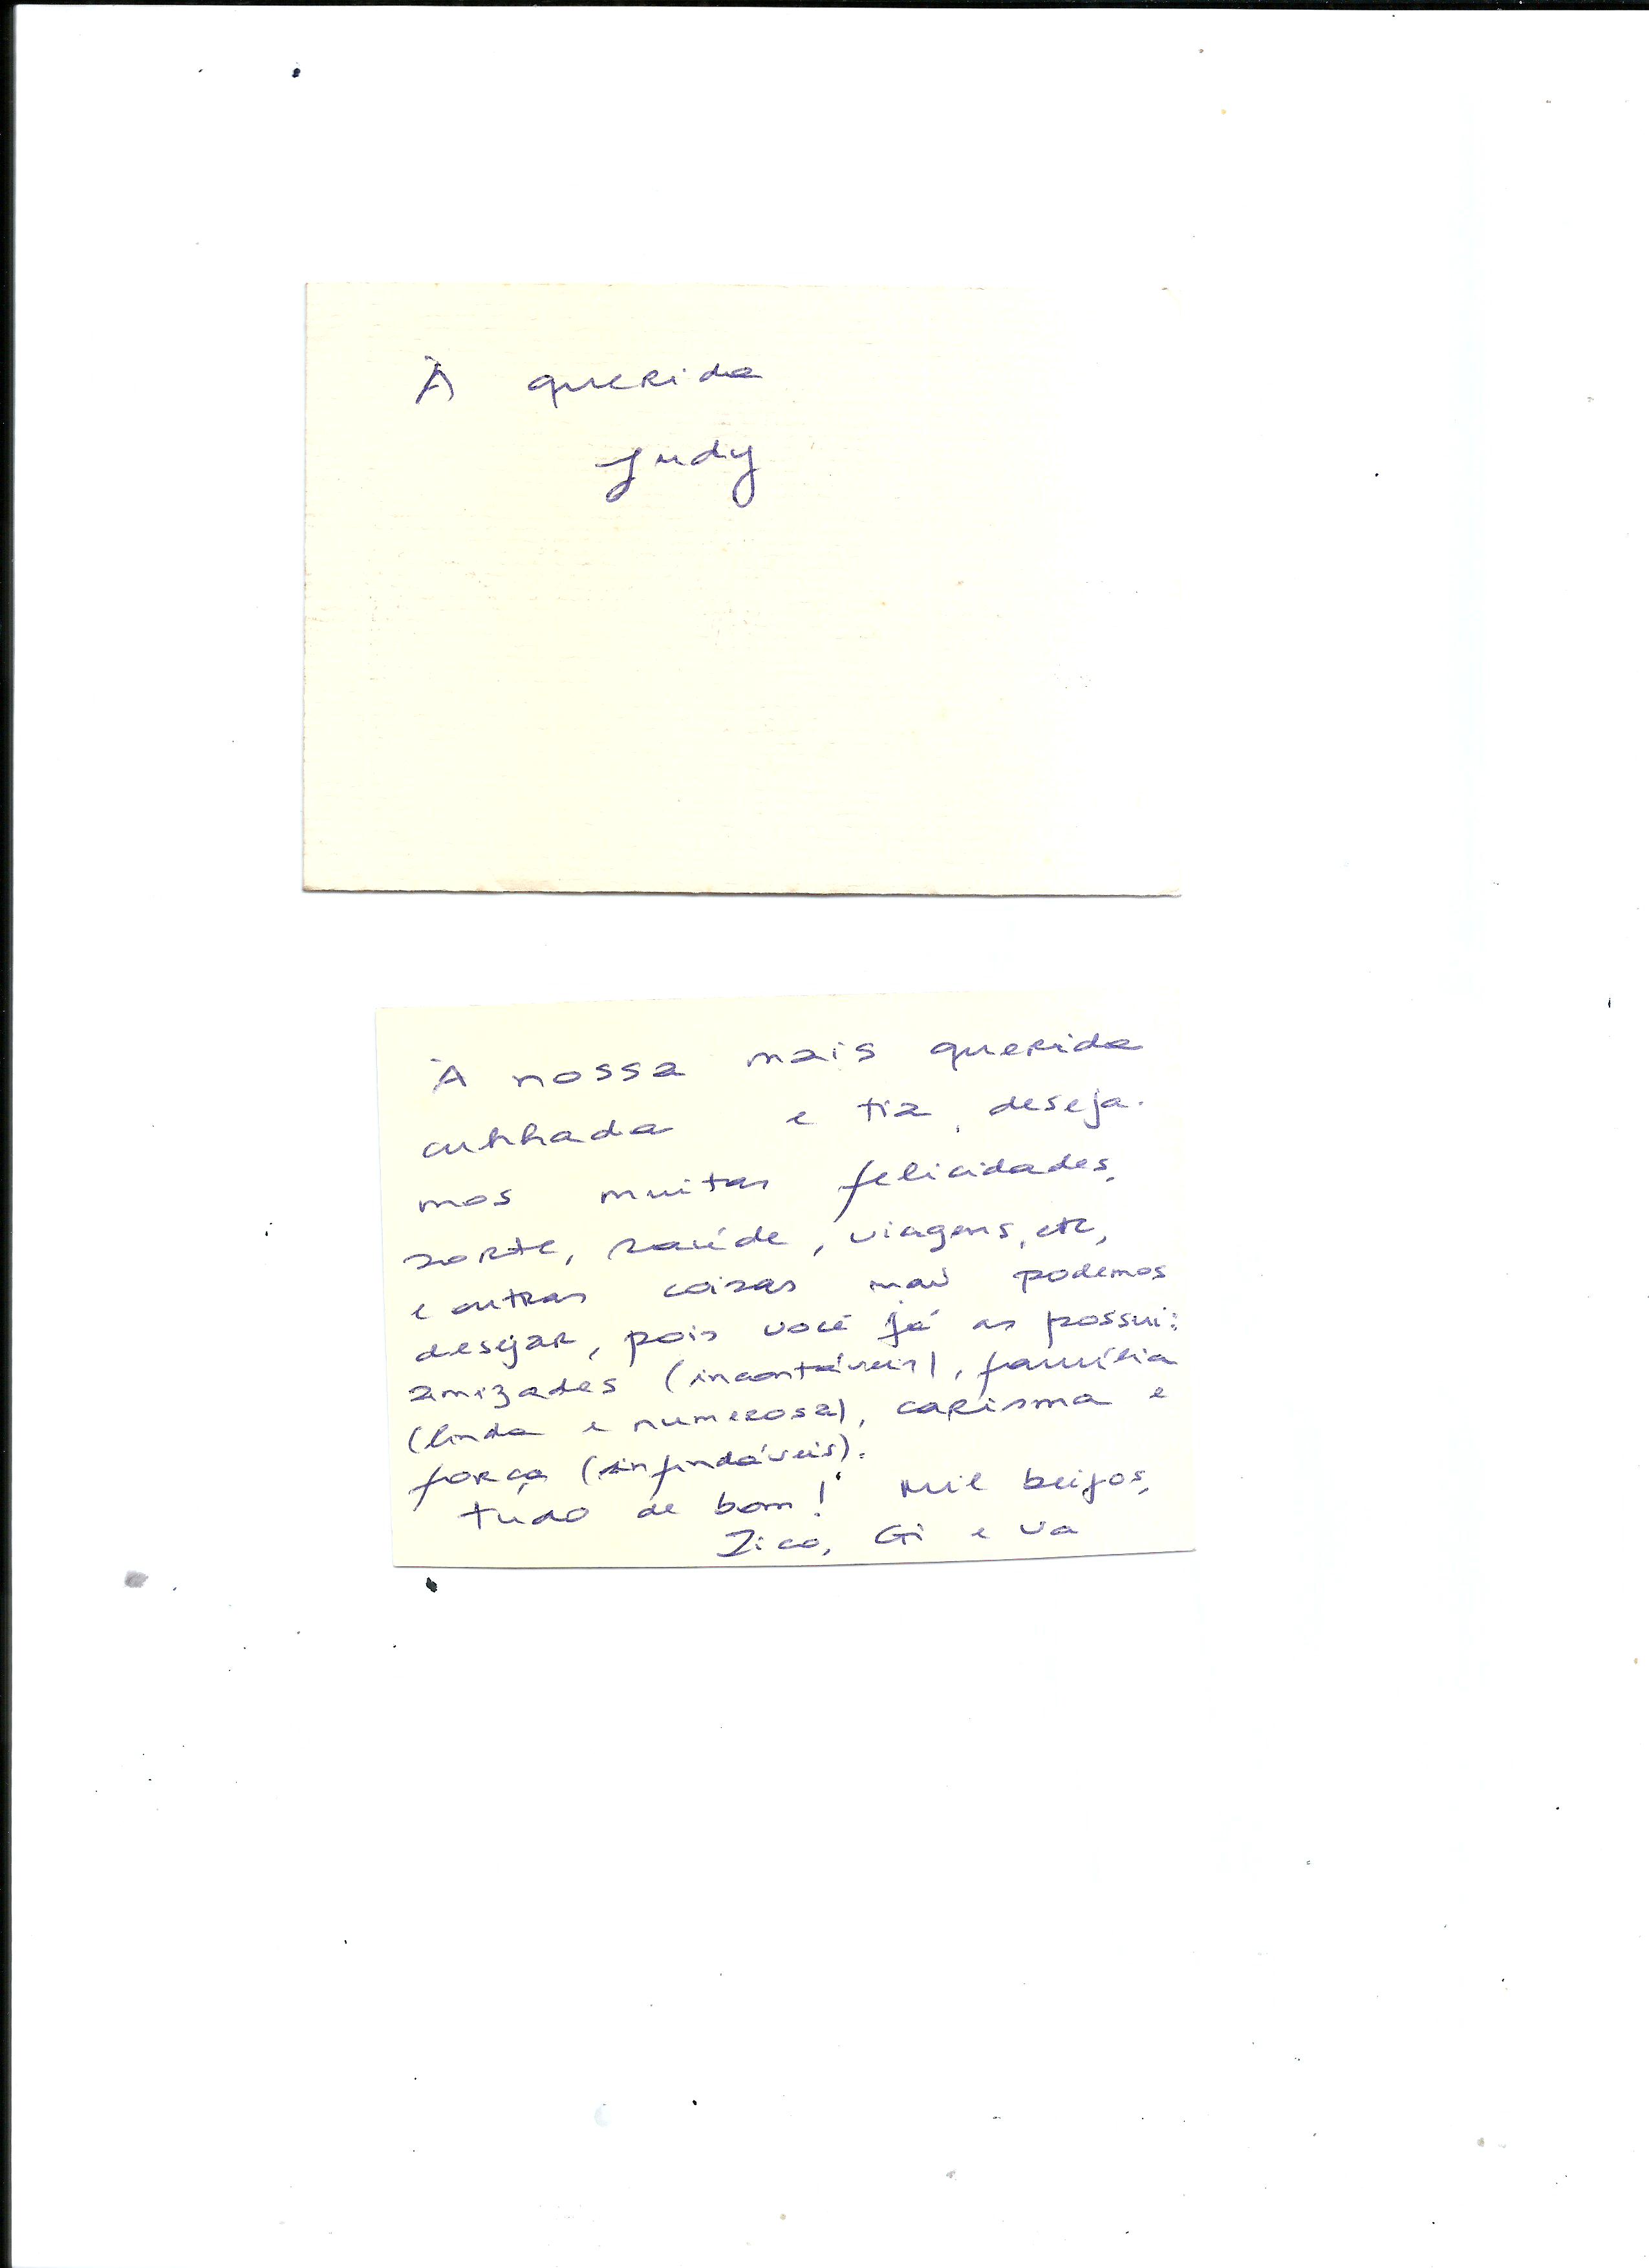 À querida
Judy
À nossa mais querida
cunhada e tia, deseja-
mos muitas felicidades,
sorte, saúde, viagens, etc,
e outras coisas mais podemos
desejar, pois você já as possui:
amizades (incontáveis), família
(linda e numerosa), carisma e
força (infindáveis).
Tudo de bom! Mil beijos,
Zico, Gi e Va